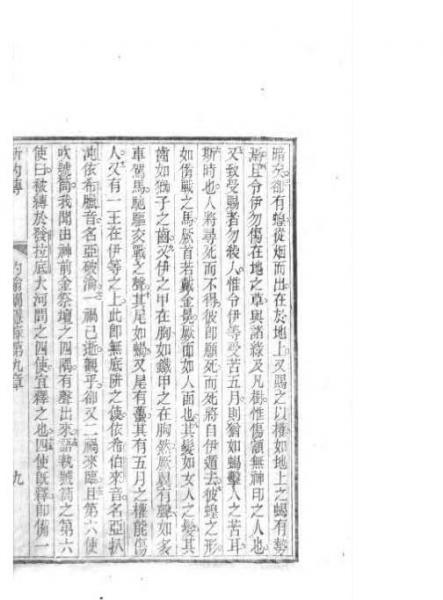 暗矣。卻有蝗從烟而出在於地上。又賜之以權如地上之蝎有勢
焉。且令伊勿傷在地之草與諸綠及凡樹惟傷額無神印之人也。
又致受賜者勿殺人惟令伊等受苦五月。則猶如蝎擊人之苦耳。
斯時也人將尋死而不得。彼卽願死而死將自伊遁去。彼蝗之形
如備戰之馬。厥首若戴金冕。厥面如人面也。其髮如女人之髮。其
齒如獅子之齒。又伊之甲在胸如鐵甲之在胸然。厥翼有聲如多
車駕馬馳驅交戰之聲。其尾如蝎。又尾有
其有五月之權能傷
人。又有一王在伊等之上。此卽無底
之使。依希伯來音名亞
依布臘音名亞破淪。一禍已逝。觀乎卻又二禍來臨。且第六使
吹號筒。我聞出神前金祭壇之四隅有聲出來語執號筒之第六
使曰。被縛於
大河間之四使宜釋之也。四使旣釋卽備一
第九章
九